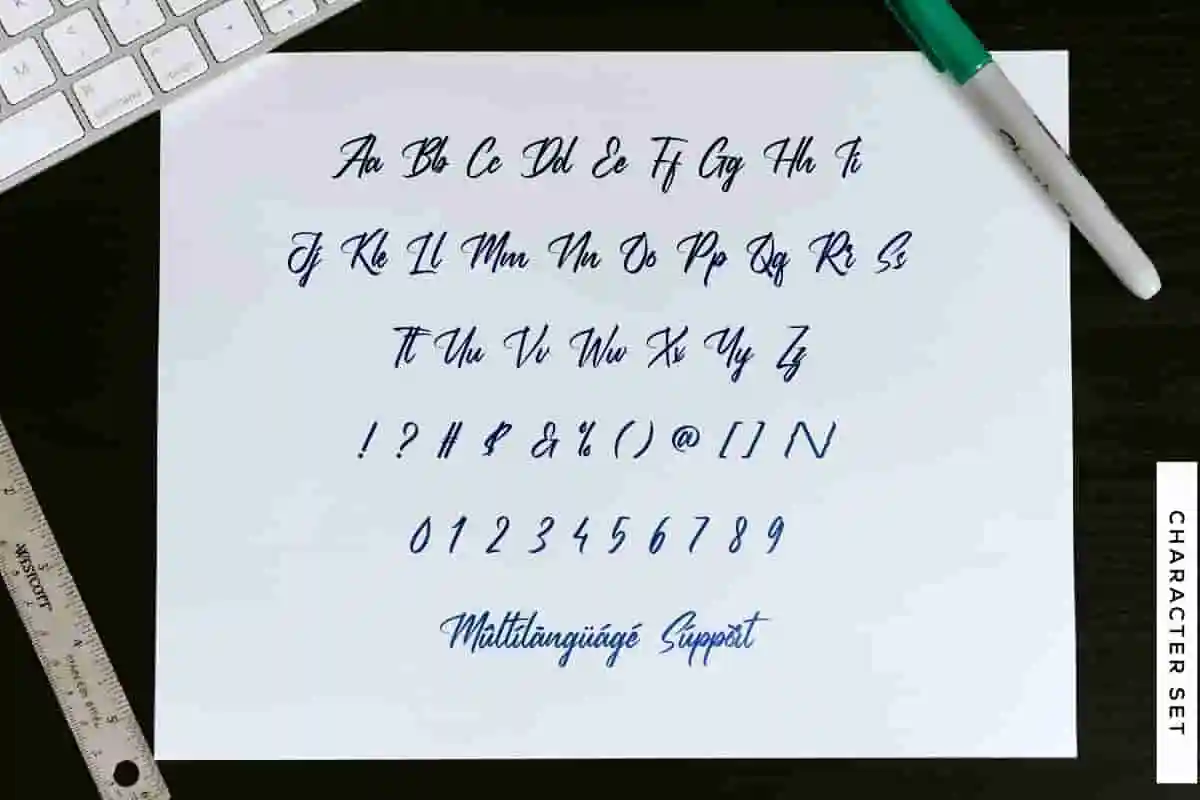 Aa Bb Cc Dd Ee Ff Gg Hh Ii
Jj Kk Ll Mm Nn Oo Pp Qq Rr Ss
Tt Uu Vv Ww Xx Yy Zz
! ? # $ & % ( ) @ [ ] / \ /
0 1 2 3 4 5 6 7 8 9
Mûltílāngüágé Súppőrt
WESTCOTT
CHARACTER SET